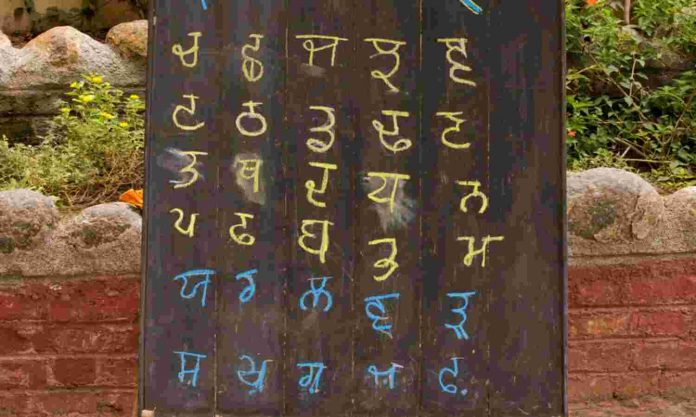 ਚ ਛ ਜ ਝ ਞ
ਟ ਠ ਡ ਢ ਣ
ਤ ਥ ਦ ਧ ਨ
ਪ ਫ ਬ ਭ ਮ
ਯ ਰ ਲ ਵ ੜ
ਸ਼ ਖ਼ ਗ਼ ਜ਼ ਫ਼